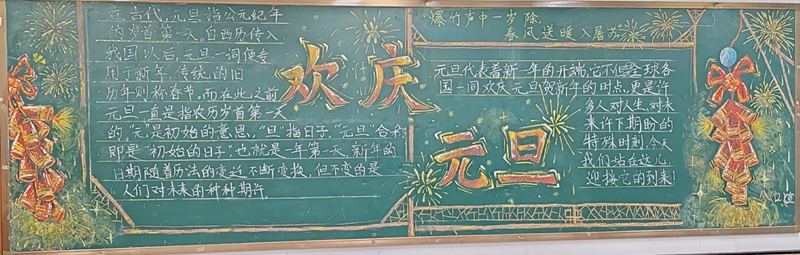 在古代,元旦指公元纪年
的岁首第一天,自西历传入
我国以后,元旦一词便专
用于新年,传统的旧
历年则称春节,而在此之前
元旦一直是指农历岁首第一天
的,"元"是初始的意思,"旦"指日子,"元旦"合称
即是"初始的日子",也就是一年第一天,新年的
日期随着历法的变迁不断变换,但不变的是
人们对未来的种种期许.
欢庆
元旦
爆竹声中一岁除
春风送暖入屠苏
元旦代表着新一年的开端,它不
全球各
国一同欢庆元旦贺新年的时点,更是许
多人对人生,对未
来许下期盼的
特殊时刻,今天
我们站在这儿,
迎接它的到来!